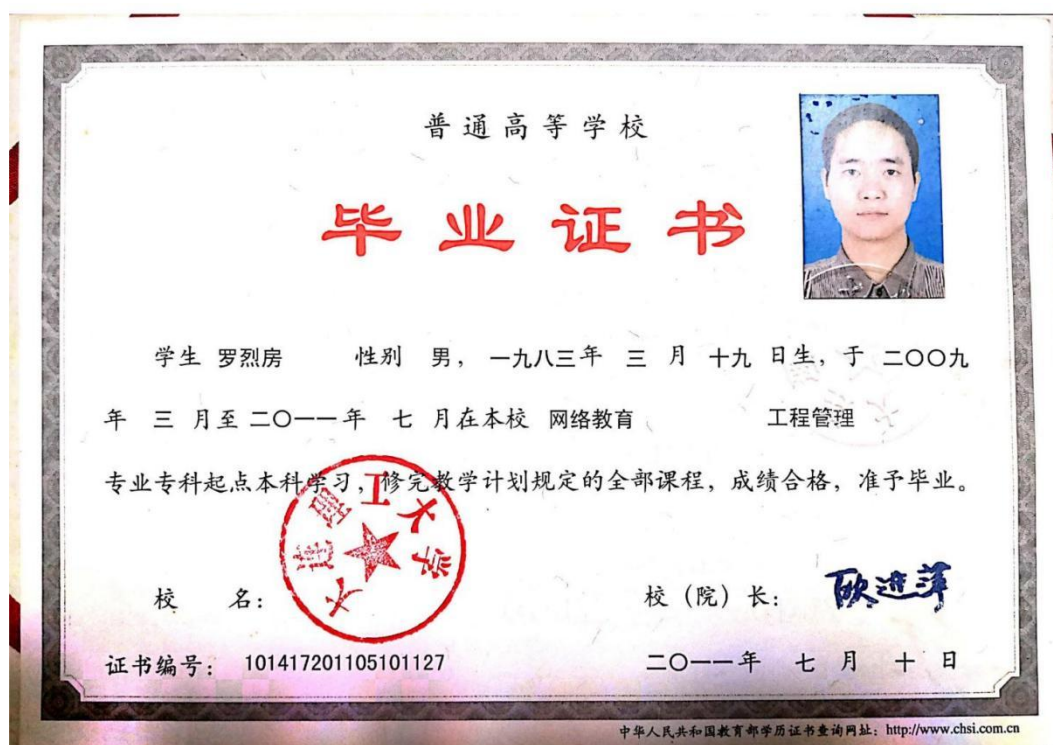 普通高等学校
毕业证书
学生 罗烈房 性别 男，一九八三年 三 月 十九 日生，于 二〇〇九
年 三 月至 二〇一一 年 七 月在本校 网络教育 工程管理
专业专科起点本科学习，修完教学计划规定的全部课程，成绩合格，准予毕业。
大连理工大学
校 名： 校（院）长： 欧进萍
证书编号： 101417201105101127 二〇一一 年 七 月 十 日
中华人民共和国教育部学历证书查询网址：http://www.chsi.com.cn